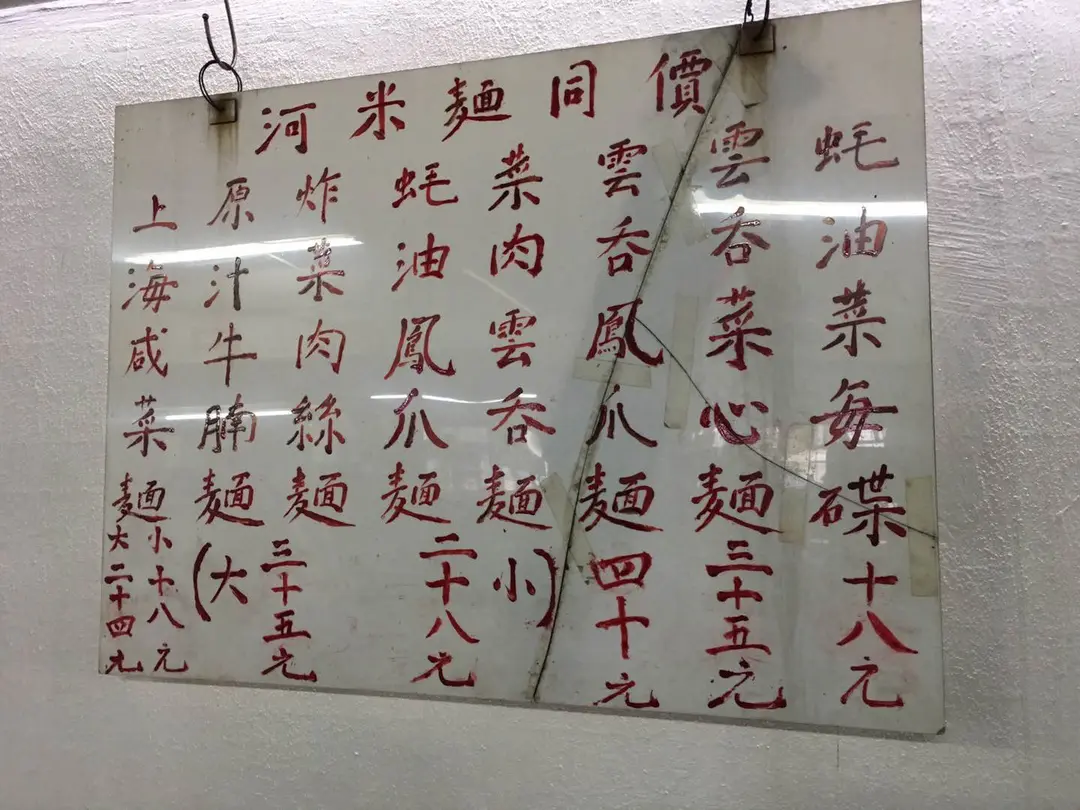 河米麵同價
蚝油菜每碟十八元
雲吞菜心麵三十五元
雲吞鳳爪麵四十元
菜肉雲吞麵
蚝油鳳爪麵
炸菜肉絲麵
原汁牛腩麵
(大
三十五元
二十八元
小)
上海咸菜麵
小十八元
大二十四元